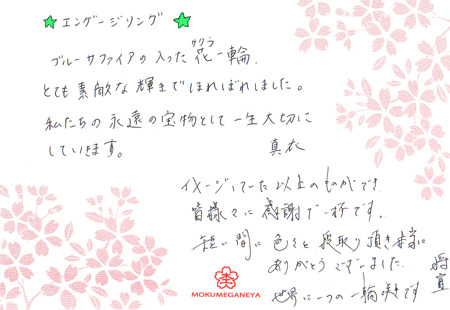 ★エンゲージリング★
ブルーサファイアの入った花一輪。
サクラ
とても素敵な輝きでほれぼれしました。
私たちの永遠の宝物として一生大切に
していきます。
真衣
イメージしていた以上のものができ
皆様々に感謝で一杯です。
短い間に色々と
頂き
ありがとうございました。
世界に一つの一輪
です
将宣
MOKUMEGANEYA